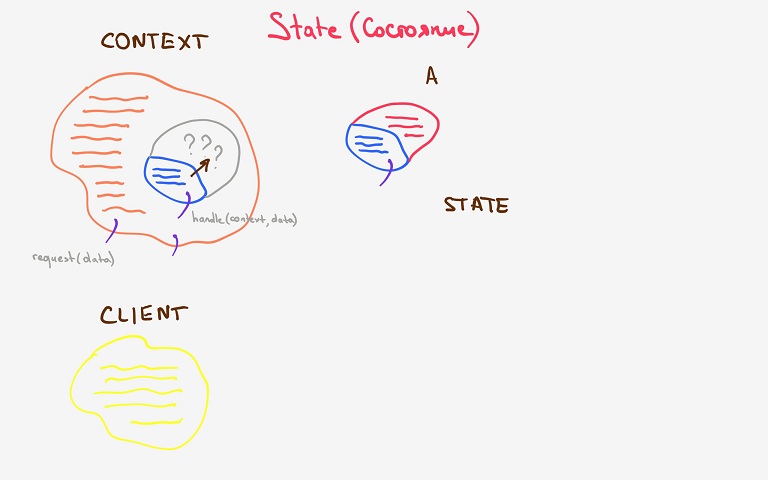 State (Состояние)
CONTEXT
A
???
handle(context, data)
STATE
request(data)
CLIENT